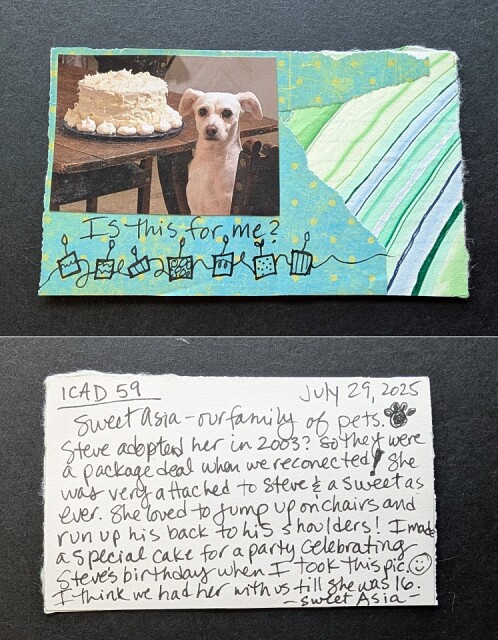 Is this for me?
ICAD 59
July 29, 2025
Sweet Asia - our family of pets.
Steve adopted her in 2003? So they were
a package deal when we reconected! She
was very attached to Steve & a sweet as
ever. She loved to jump up on chairs and
run up his back to his shoulders! I made
a special cake for a party celebrating
Steve's birthday when I took this pic.
I think we had her with us till she was 16.
- Sweet Asia -